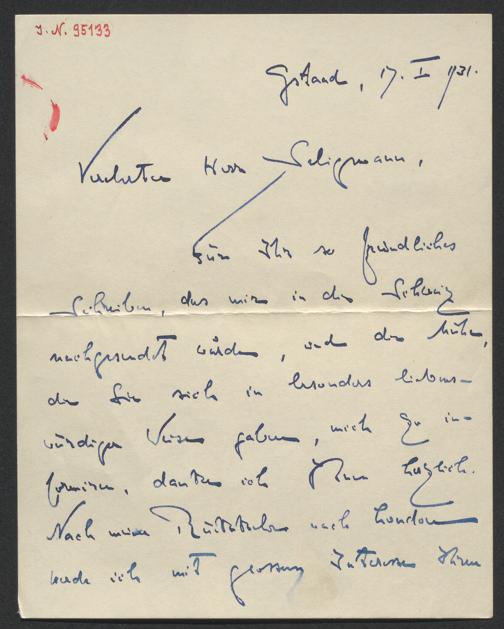 I. N. 95133
Gstaad, 17. I 1931.
Verehrter Herr Seligmann,
Für Ihr so freundliches
Schreiben, das mir in die Schweiz
nachgesandt wurde, und die Mühe,
die Sie sich in besonders liebens-
würdiger Weise gaben, mich zu in-
formieren, danke ich Ihnen herzlich.
Nach meiner Rückkehr nach London
werde ich mit grossem Interesse Ihren